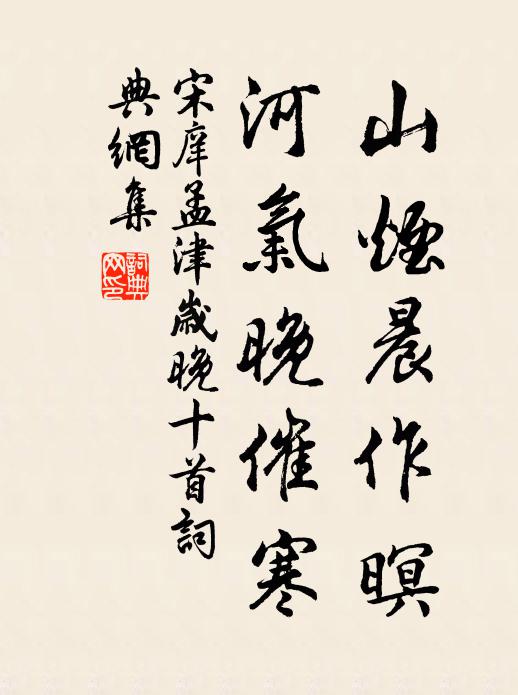 山煙晨作暝
河氣晚催寒
宋庠孟津歲晚十首詞
典網集
詞典
网印